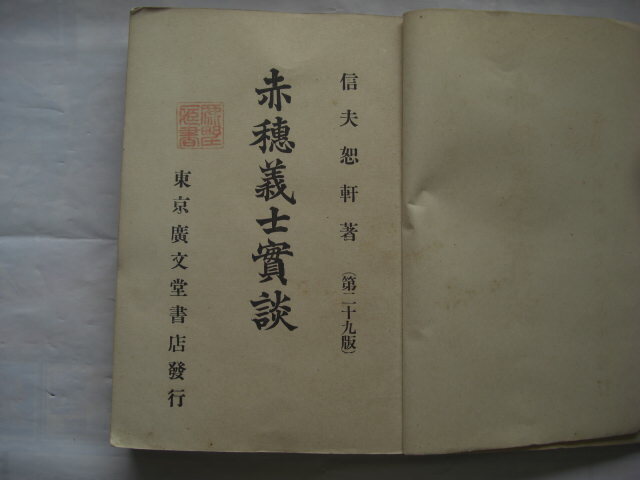 信夫恕軒著（第二十九版）
赤穗義士實談
東京廣文堂書店發行